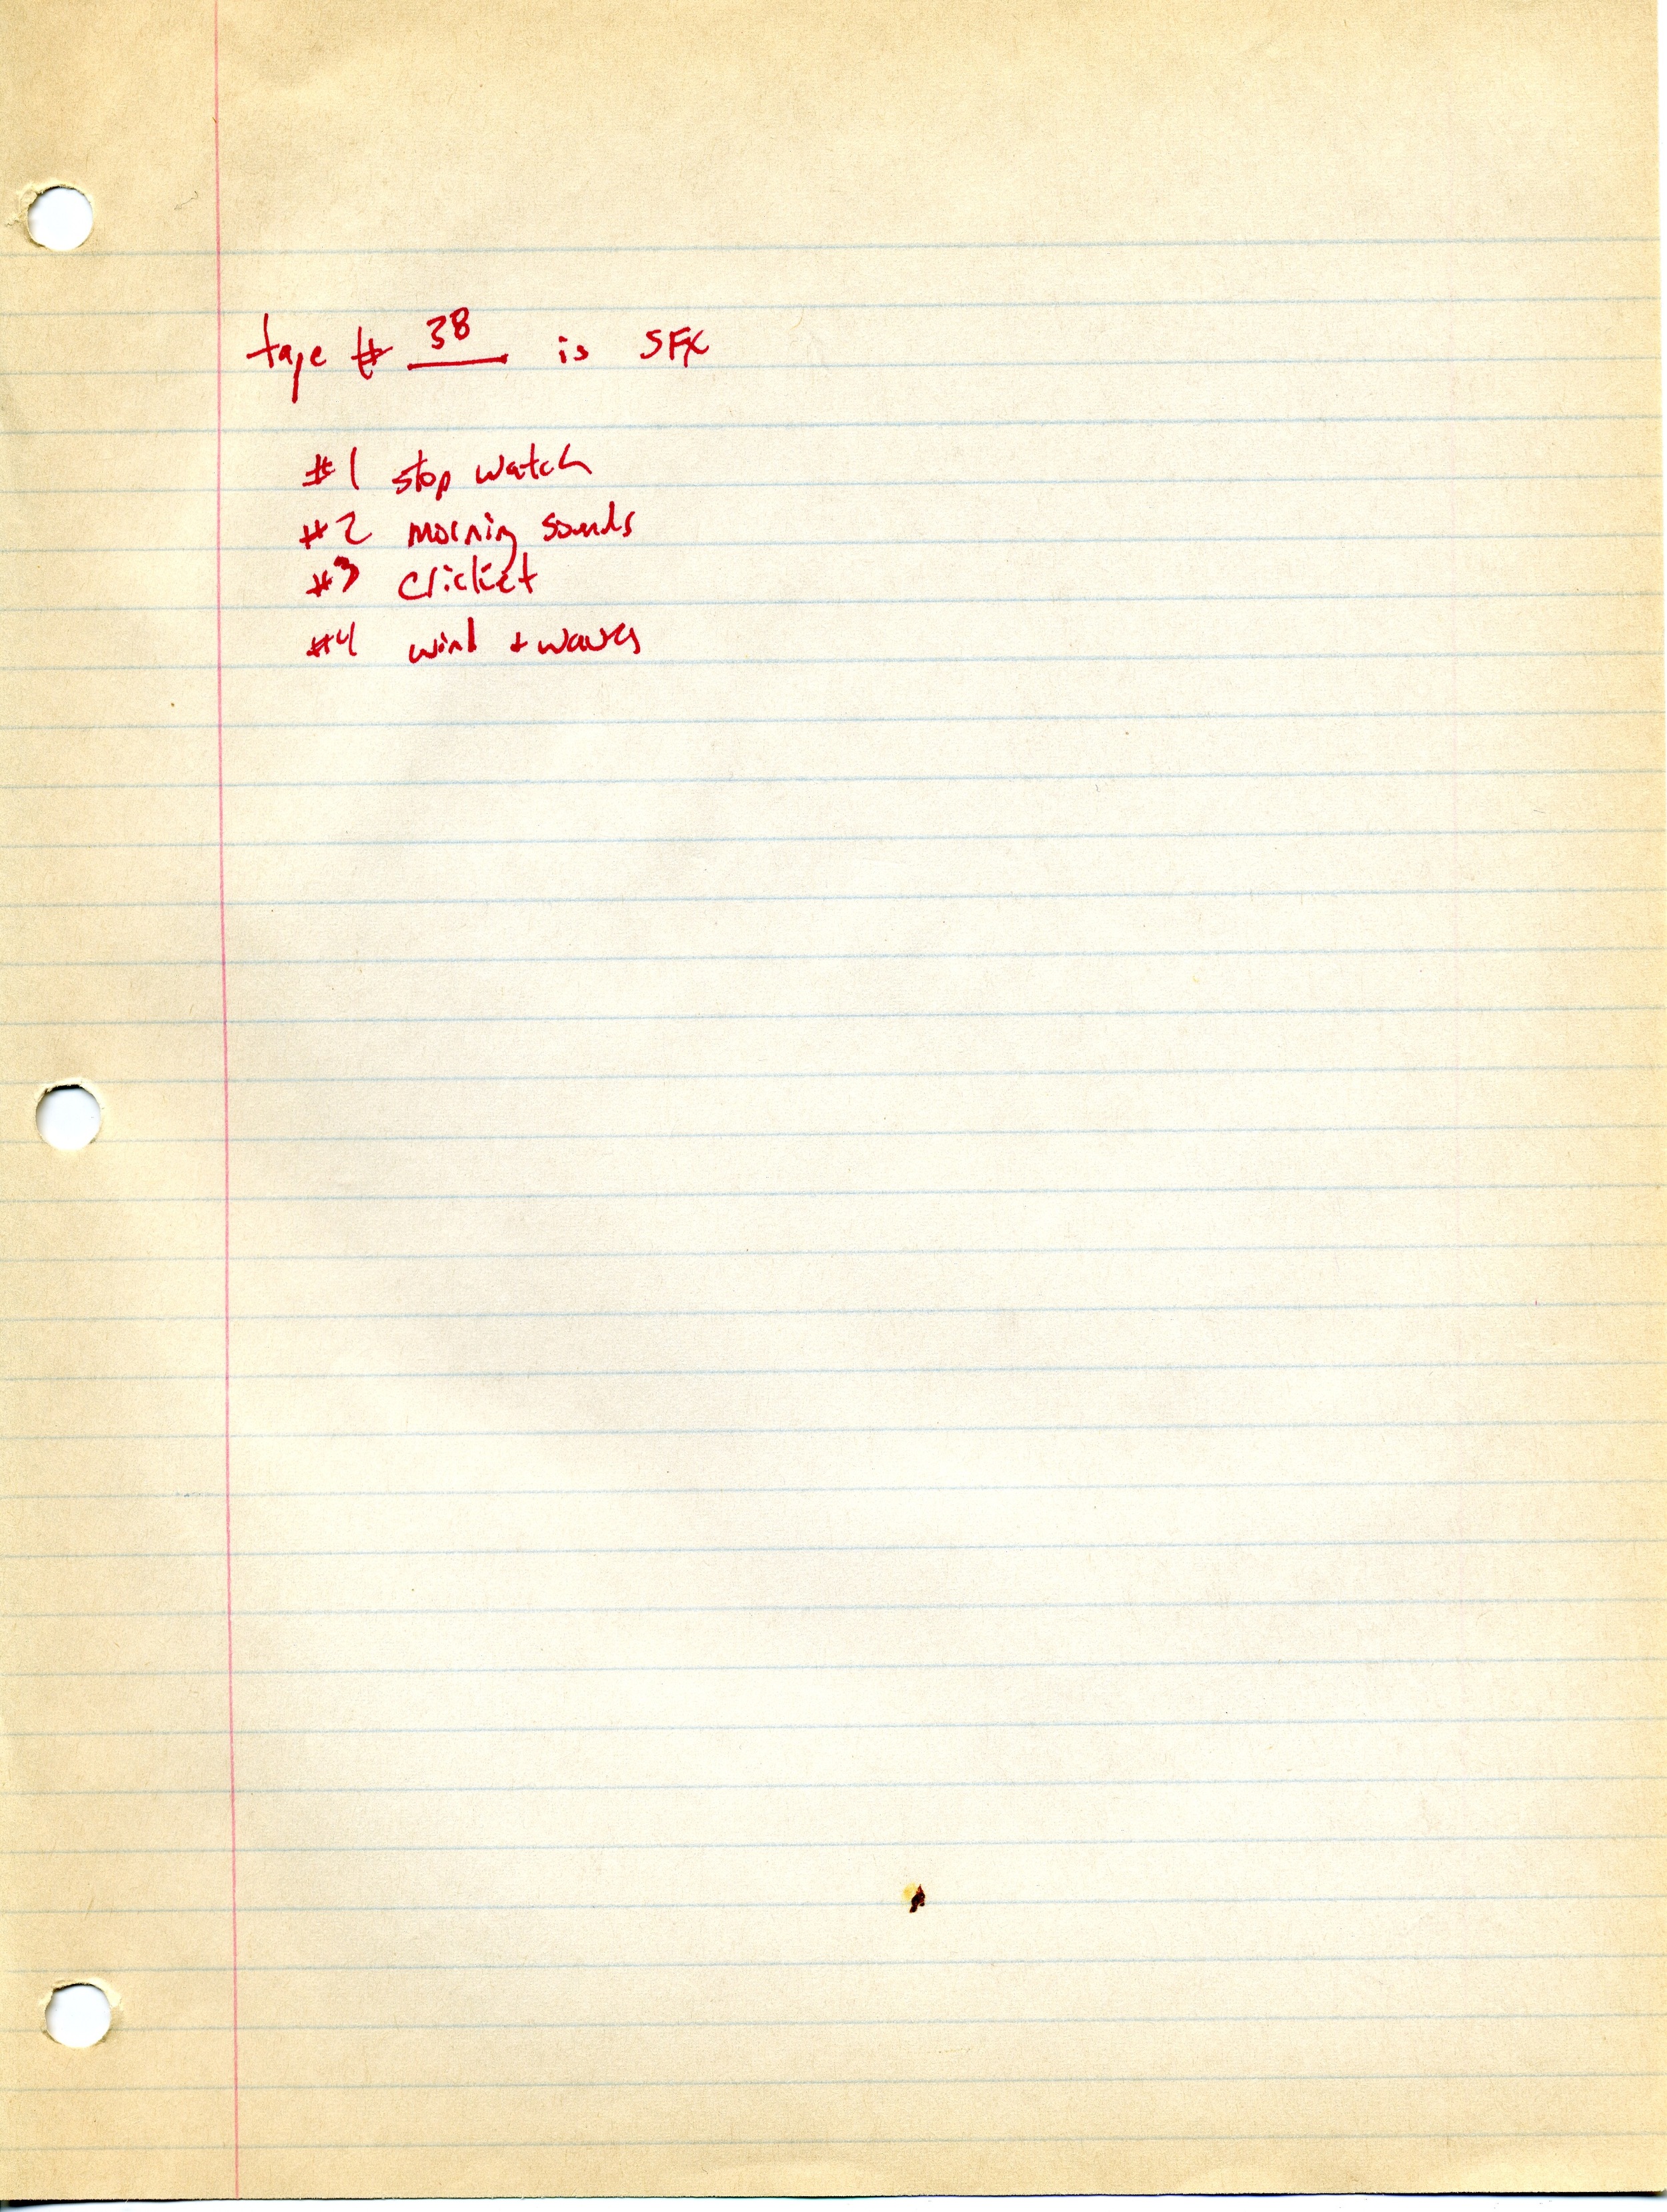 tape # 38 is SFX
#1 stop watch
#2 morning sounds
#3 cricket
#4 wind + waves